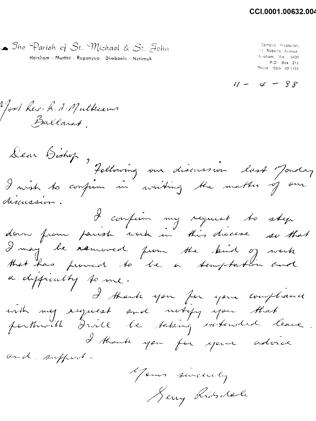 CCI.0001.00632.004
The Parish of St. Michael & St. John
Horsham - Murtoa - Rupanyup - Dimboola - Natimuk
11-4-88
Most Rev. R A Mulkearns
Ballarat.
Dear Bishop,
Following our discussion last Monday
I wish to confirm in writing the matter of our
discussion.
I confirm my request to step
down from parish work in this diocese so that
I may be removed from the kind of work
that has proved to be a temptation and
a difficulty to me.
I thank you for your compliance
with my request and notify you that
forthwith I will be taking extended leave.
I thank you for your advice
and support.
Yours sincerely
Gerry Ridsdale